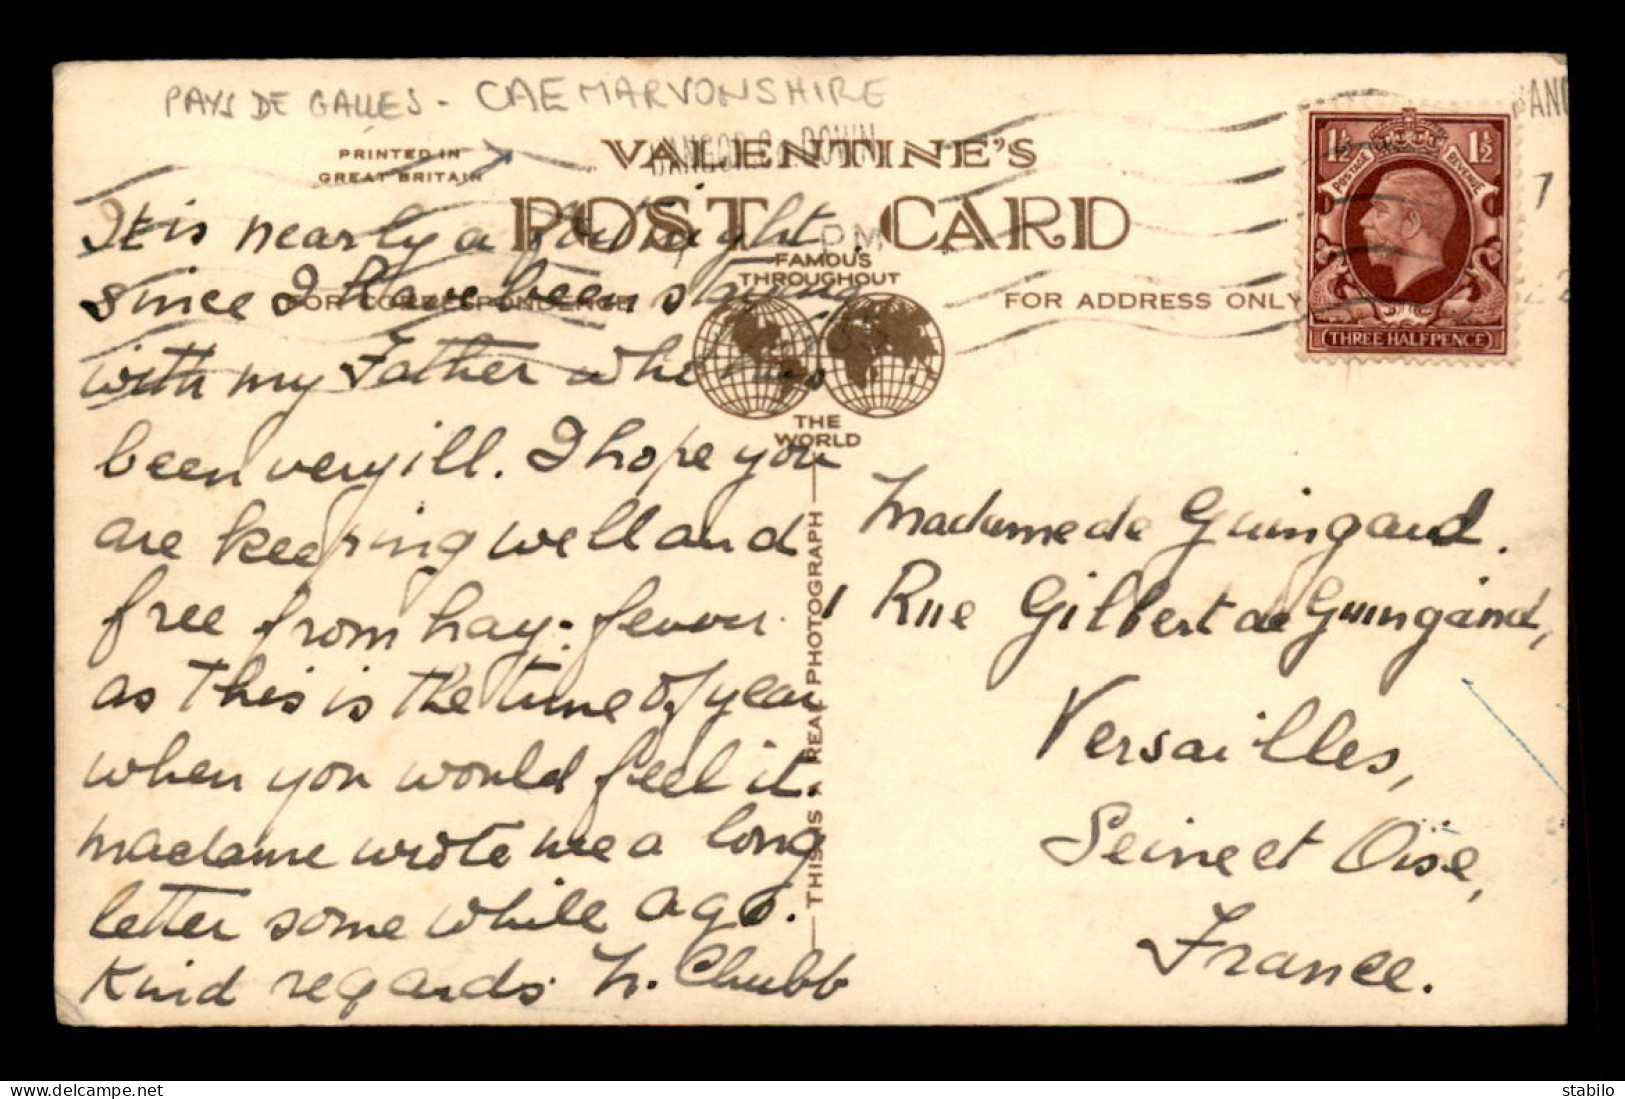 PAYS DE GALLES - CAEMARVONSHIRE
PRINTED IN
GREAT BRITAIN
VALENTINE'S
POST CARD
FAMOUS
THROUGHOUT
THE
WORLD
FOR CORRESPONDENCE
FOR ADDRESS ONLY
PM
1½ 1½
POSTAGE REVENUE
THREE HALFPENCE
It is nearly a fortnight
since I have been staying
with my Father who has
been very ill. I hope you
are keeping well and
free from hay-fever
as this is the time of year
when you would feel it.
Madame wrote me a long
letter some while ago.
Kind regards. N. Chubb
THIS IS A REAL PHOTOGRAPH
Madame de Guingand.
1 Rue Gilbert de Guingand,
Versailles,
Seine et Oise,
France.
stabilo